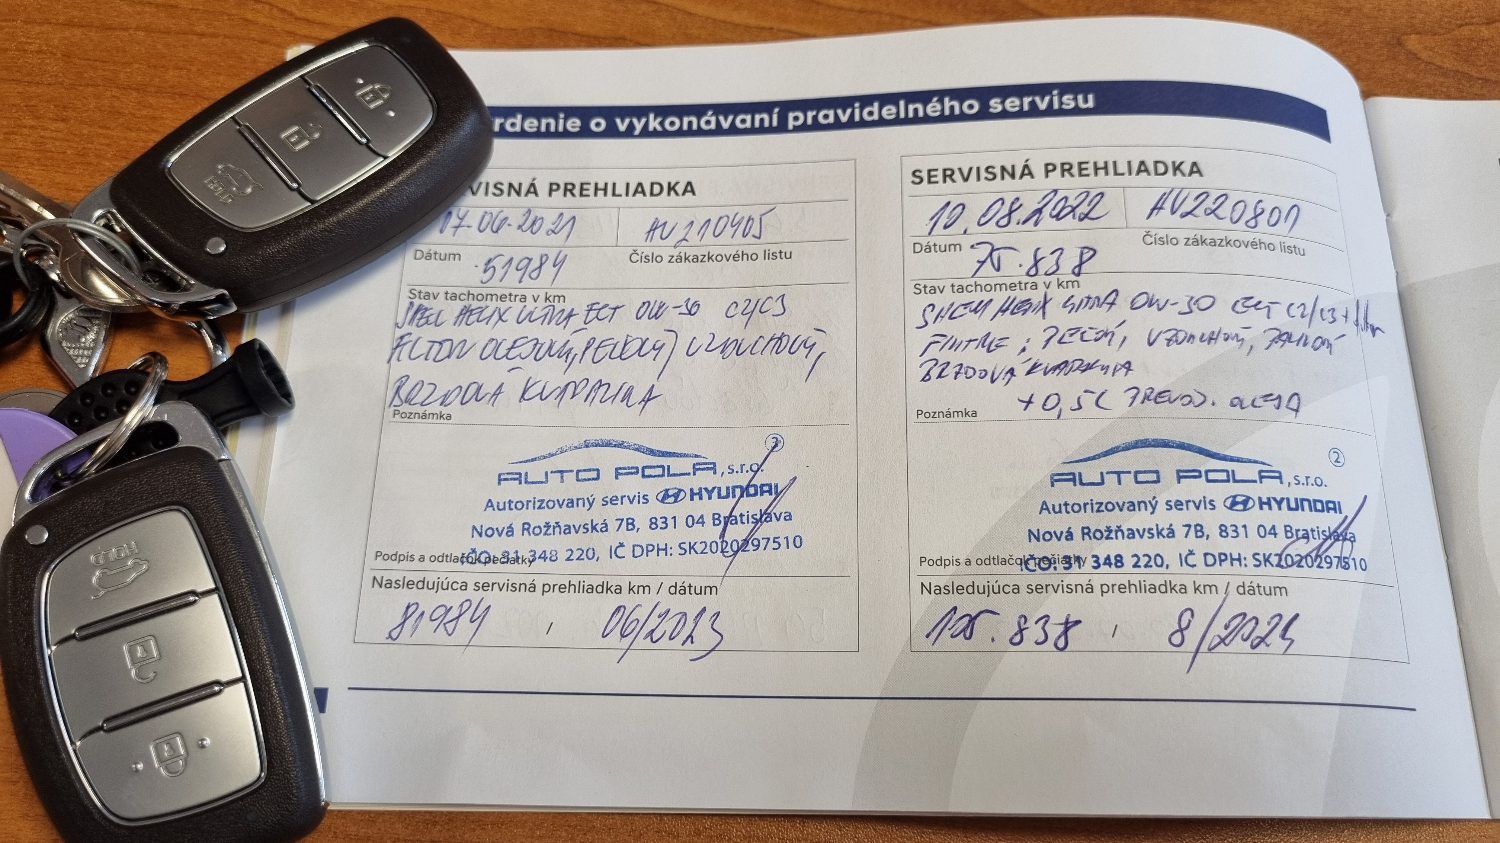 rdenie o vykonávaní pravidelného servisu
VISNÁ PREHLIADKA
17.06.2021 AV210405
Dátum Číslo zákazkového listu
51984
Stav tachometra v km
SHELL HELIX ULTRA ECT 0W-30 C2/C3
FILTON OLEJOVÝ, PEĽOVÝ, VZDUCHOVÝ,
BRZDOVÁ KVAPALINA
Poznámka
3
AUTO POLA, s.r.o.
Autorizovaný servis HYUNDAI
Nová Rožňavská 7B, 831 04 Bratislava
Podpis a odtlačok pečiatky
IČO: 31 348 220, IČ DPH: SK2020297510
Nasledujúca servisná prehliadka km / dátum
81984 / 06/2023
SERVISNÁ PREHLIADKA
10.08.2022 AV220801
Dátum Číslo zákazkového listu
75.838
Stav tachometra v km
SHELL HELIX ULTRA 0W-30 ECT C2/C3 +
FILTRE; PEĽOVÝ, VZDUCHOVÝ,
BRZDOVÁ KVAPALINA
+0,5L PREVOD. OLEJA
Poznámka
2
AUTO POLA, s.r.o.
Autorizovaný servis HYUNDAI
Nová Rožňavská 7B, 831 04 Bratislava
Podpis a odtlačok pečiatky
IČO: 31 348 220, IČ DPH: SK2020297510
Nasledujúca servisná prehliadka km / dátum
105.838 / 8/2024
HOLD
HOLD